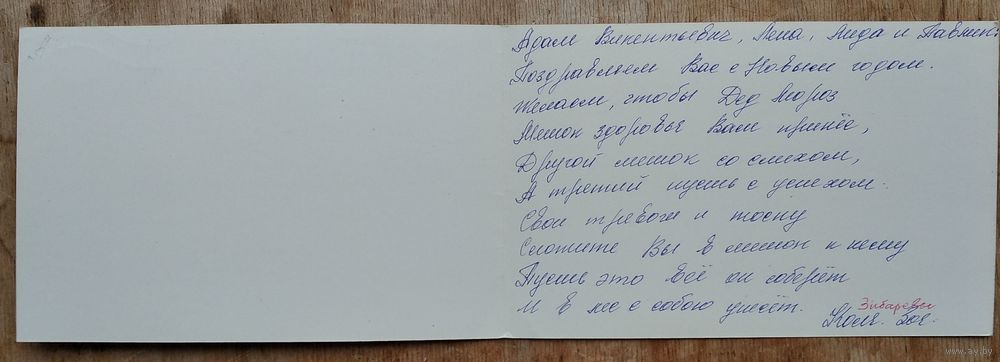 Адам Викентьевич, Лена, Лида и Павлик!
Поздравляем Вас с Новым годом.
Желаем, чтобы Дед Мороз
Мешок здоровья Вам принёс,
Другой мешок со смехом,
А третий пусть с успехом.
Свои тревоги и тоску
Сложите Вы в мешок к нему
Пусть это всё он соберёт
И в лес с собою унесёт.
Зибаревы
Коля.
www.ay.by